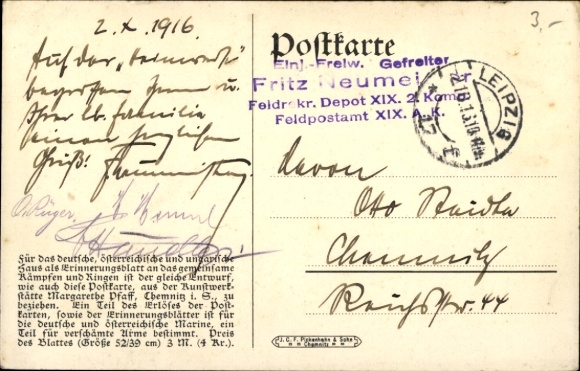 2. X. 1916.
3.-
Auf der
Ihrer lb. Familie
einen herzlichen
Gruß!
O. Rüger,
Für das deutsche, österreichische und ungarische
Haus als Erinnerungsblatt an das gemeinsame
Kämpfen und Ringen ist der gleiche Entwurf,
wie auch diese Postkarte, aus der Kunstwerk-
stätte Margarethe Pfaff, Chemnitz i. S., zu
beziehen. Ein Teil des Erlöses der Post-
karten, sowie der Erinnerungsblätter ist für
die deutsche und österreichische Marine, ein
Teil für verschämte Arme bestimmt. Preis
des Blattes (Größe 52/39 cm) 3 M. (4 Kr.).
Postkarte
Einj.-Freiw. Gefreiter
Fritz Neumei
Feldrekr. Depot XIX. 2. Komp.
Feldpostamt XIX. A. K.
LEIPZIG
Herrn
Otto
Chemnitz
Reichsstr. 44
J. C. F. Pickenhahn & Sohn
Chemnitz